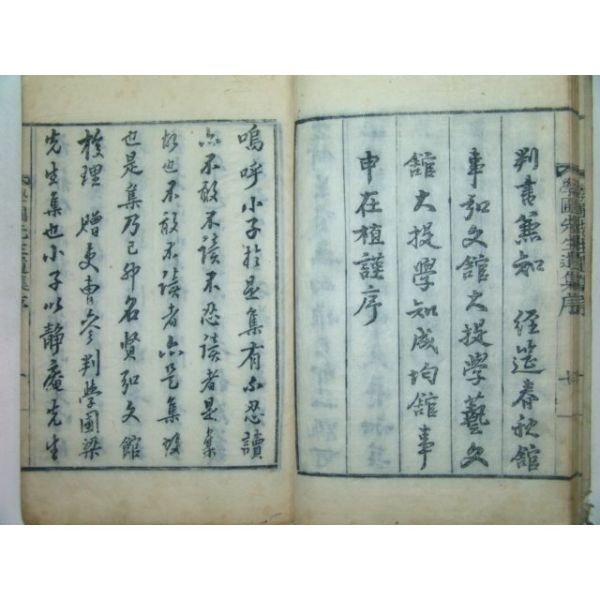 學圃先生遺集序
判書兼知 經筵春秋館
事弘文館大提學藝文
館大提學知成均館事
申在植謹序
嗚呼小子於是集有不忍讀
亦不敢不讀不忍讀者是集
故也不敢不讀者亦是集故
也是集乃己卯名賢弘文館
校理 贈吏曹參判學圃梁
先生集也小子以靜庵先生
學圃先生遺集序